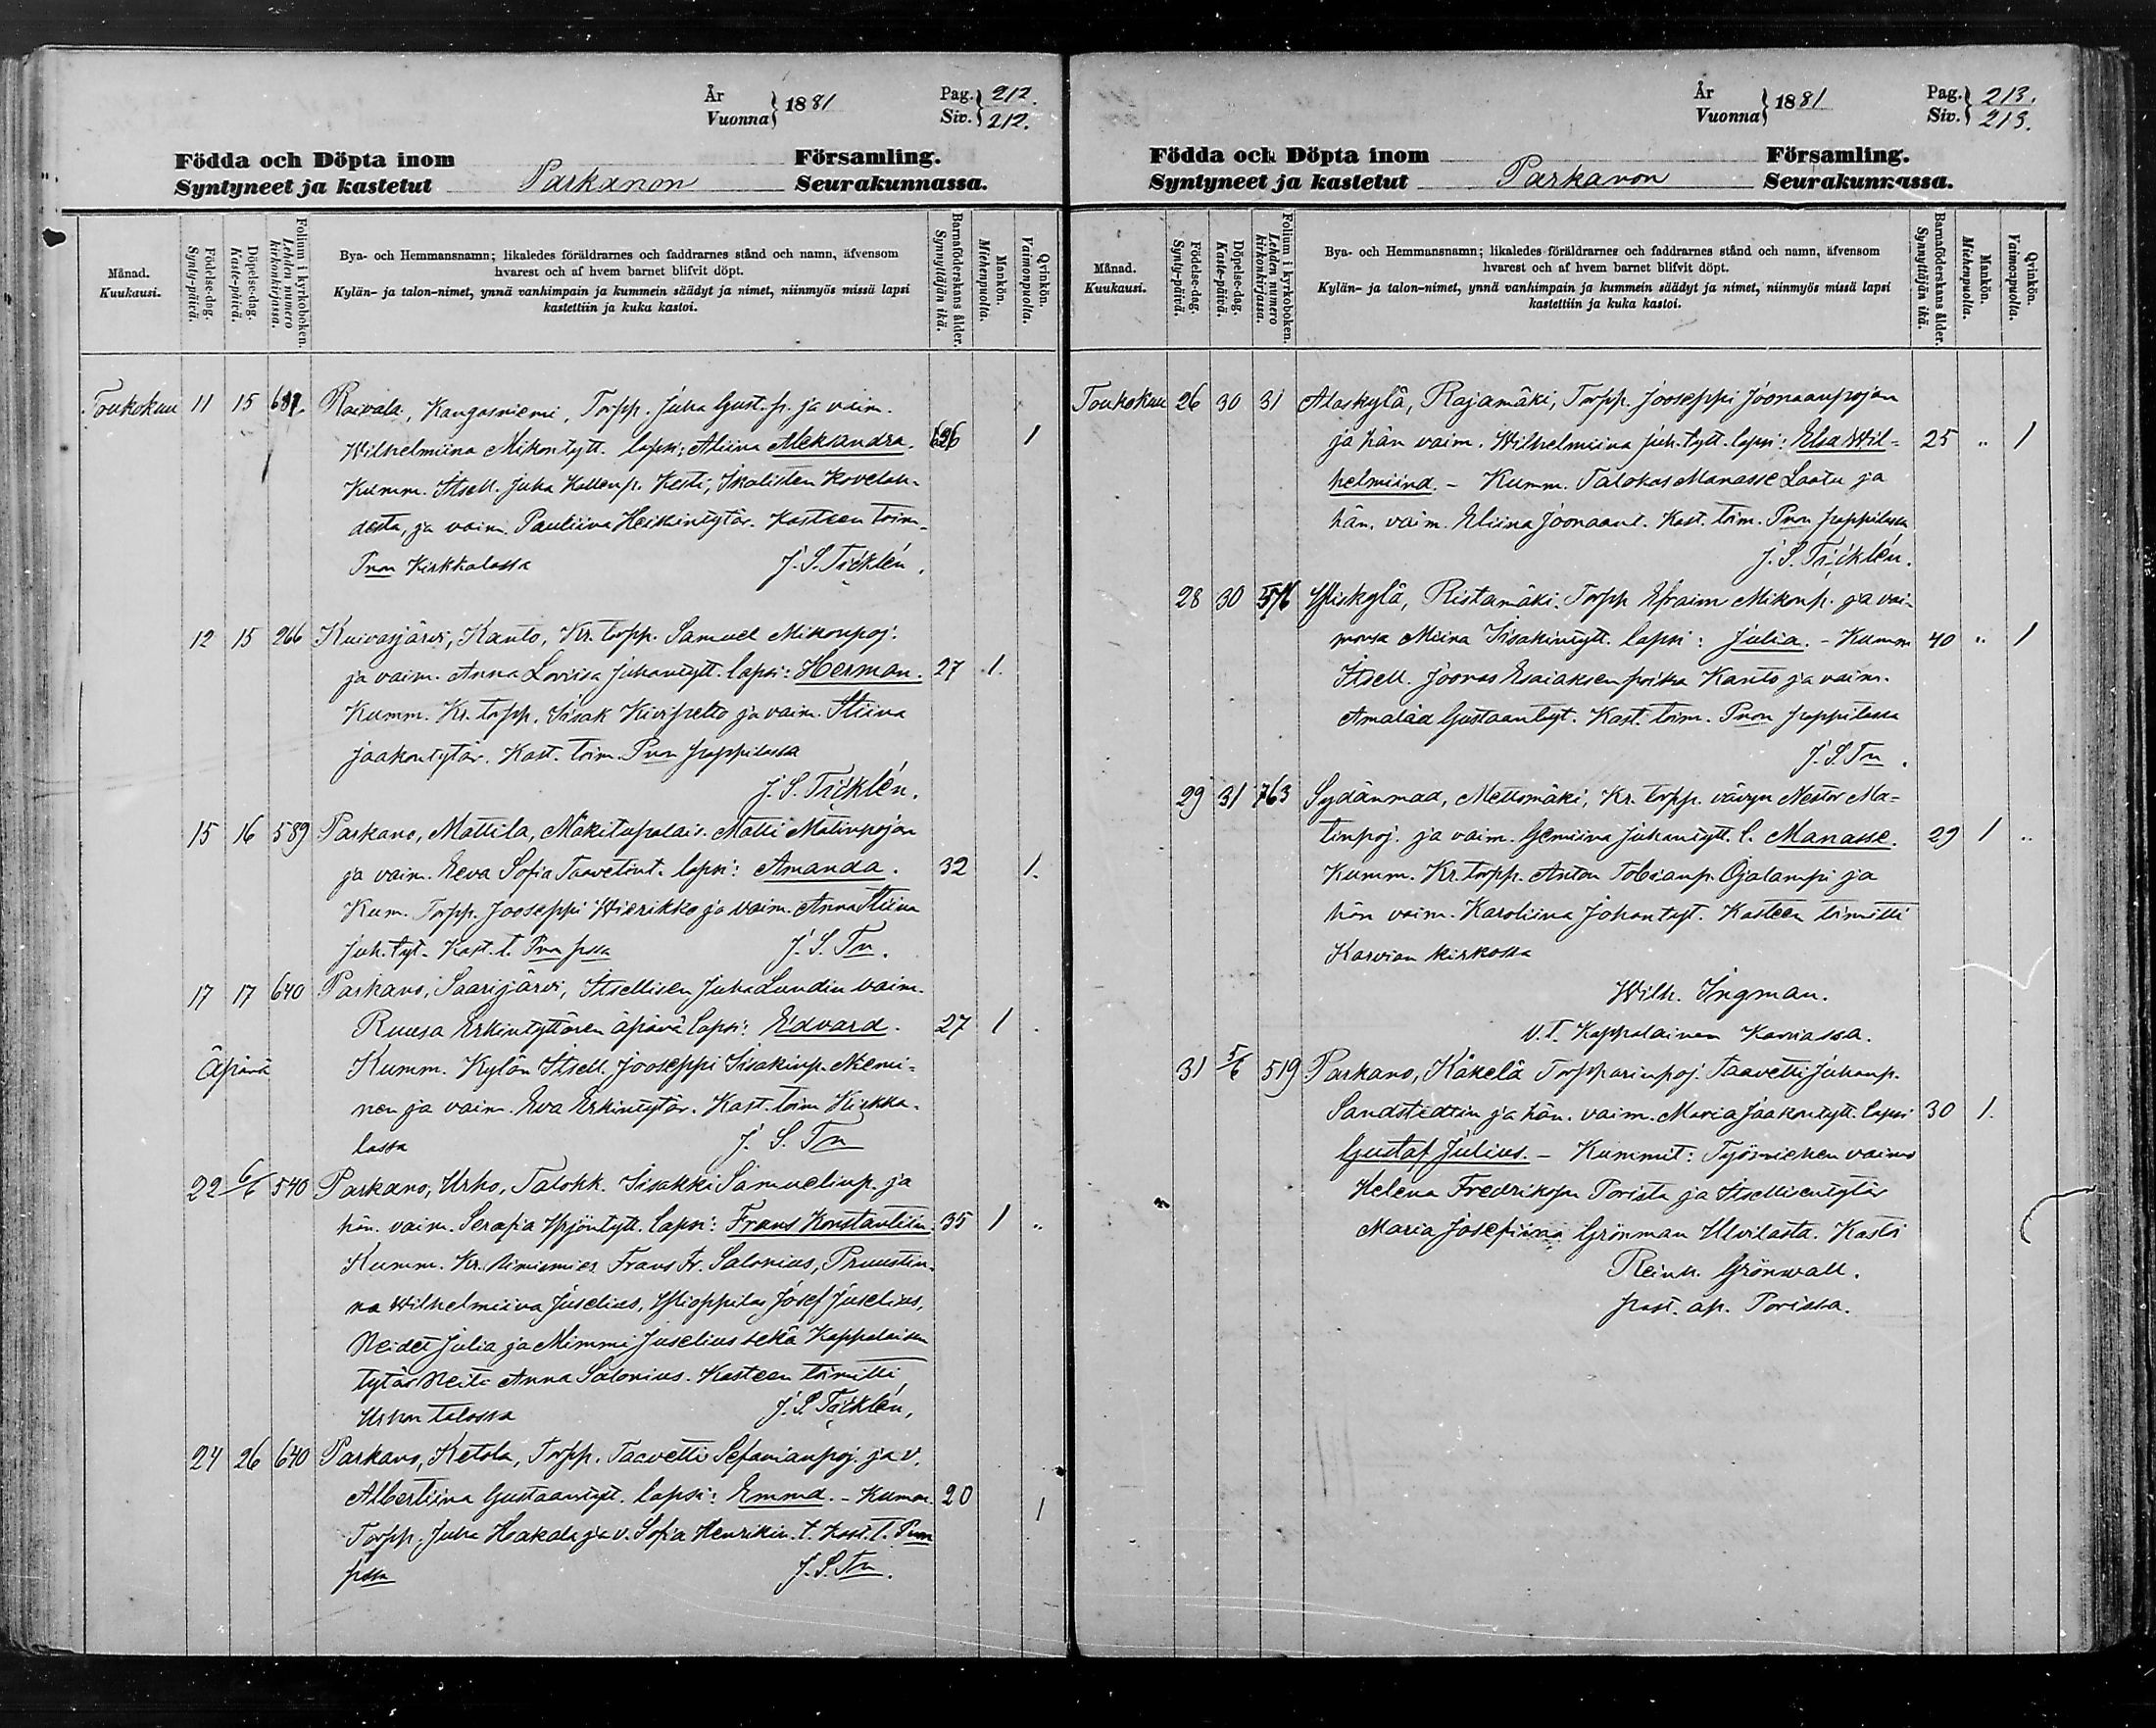 År
Vuonna } 1881
Pag. } 212.
Siv. } 212.
Födda och Döpta inom Församling.
Syntyneet ja kastetut Parkanon Seurakunnassa.
Månad.
Kuukausi.
Födelse-dag.
Synty-päivä.
Döpelse-dag.
Kaste-päivä.
Folium i kyrkoboken.
Lehden numero kirkonkirjassa.
Bya- och Hemmansnamn; likaledes föräldrarnes och faddrarnes stånd och namn, äfvensom
hvarest och af hvem barnet blifvit döpt.
Kylän- ja talon-nimet, ynnä vanhimpain ja kummein säädyt ja nimet, niinmyös missä lapsi
kastettiin ja kuka kastoi.
Barnaföderskans ålder.
Synnyttäjän ikä.
Mankön.
Miehenpuolia.
Qvinkön.
Vaimonpuolia.
Toukokuu 11 15 687. Raivala, Kangasniemi, Torpp. Juha Gust. p. ja vaim.
Wilhelmiina Mikontytt. lapsi: Aliina Aleksandra. 26 1
Kumm. Itsell. Juha Kallenp. Kesti, Ikalisten Kovelah-
desta, ja vaim. Pauliina Heikintytär. Kasteen toim.
Pnon Kirkkalassa J. S. Tricklén.
12 15 266 Kuivasjärvi, Kanto, Kr. torpp. Samuel Mikonpoj.
ja vaim. Anna Loviisa Juhantytt. lapsi: Herman. 27 1.
Kumm. Kr. torpp. Iisak Kivipelto ja vaim. Stiina
Jaakontytär. Kast. toim. Pnon pappilassa
J. S. Tricklén.
15 16 589 Parkano, Mattila, Mäkitupalais. Matti Matinpojan
ja vaim. Eeva Sofia Taavetint. lapsi: Amanda. 32 1.
Kum. Torpp. Jooseppi Wierikko ja vaim. Anna Stiina
Juh. tyt. Kast. t. Pnon pssa J. S. Tn.
17 17 640 Parkano, Saarijärvi, Itsellisen Juha Lundin vaim.
Ruusa Erkintyttären äpärä lapsi: Edvard. 27 1
Äpärä Kumm. Kylän Itsell. Jooseppi Iisakinp. Niemi-
nen ja vaim. Eva Erkintytär. Kast. toim Kirkka-
lassa J. S. Tn
22 6/6 540 Parkano, Urho, Talokk. Iisakki Samuelinp. ja
hän. vaim. Serafia Yrjöntytt. lapsi: Frans Konstantiin. 35 1 "
Kumm. Kr. Nimismies Frans Fr. Salonius, Pruustin-
na Wilhelmiina Juselius, Ylioppilas Josef Juselius,
Neidet Julia ja Mimmi Juselius sekä Kappalaisen
tytär Neiti Anna Salonius. Kasteen toimitti
Urhon talossa J. S. Tricklén,
24 26 640 Parkano, Ketola, Torpp. Taavetti Sefanianpoj. ja v.
Albertiina Gustaantyt. lapsi: Emma. - Kumm. 20 1
Torpp. Juha Hakala ja v. Sofia Henrikin. t. Kast. t. Pnon
pssa J. S. Tn.
År
Vuonna } 1881
Pag. } 213.
Siv. } 213.
Födda och Döpta inom Församling.
Syntyneet ja kastetut Parkanon Seurakunnassa.
Månad.
Kuukausi.
Födelse-dag.
Synty-päivä.
Döpelse-dag.
Kaste-päivä.
Folium i kyrkoboken.
Lehden numero kirkonkirjassa.
Bya- och Hemmansnamn; likaledes föräldrarnes och faddrarnes stånd och namn, äfvensom
hvarest och af hvem barnet blifvit döpt.
Kylän- ja talon-nimet, ynnä vanhimpain ja kummein säädyt ja nimet, niinmyös missä lapsi
kastettiin ja kuka kastoi.
Barnaföderskans ålder.
Synnyttäjän ikä.
Mankön.
Miehenpuolia.
Qvinkön.
Vaimonpuolia.
Toukokuu 26 30 31 Alaskylä, Rajamäki, Torpp. Jooseppi Joonaanpojan
ja hän vaim. Wilhelmiina Juh. tytt. lapsi: Elsa Wil- 25 " 1
helmiina. - Kumm. Talokas Manasse Laatu ja
hän. vaim. Eliina Joonaant. Kast. toim. Pnon pappilassa
J. S. Tricklén.
28 30 576 Yliskylä, Ristamäki, Torpp Efraim Mikonp. ja vai-
monsa Miina Iisakintytt. lapsi: Julia. - Kumm 40 " 1
Itsell. Joonas Esaiaksen poika Kanto ja vaim.
Amalia Gustaantyt. Kast. toim. Pnon pappilassa
J. S. Tn.
29 31 763 Sydänmaa, Mettomäki, Kr. torpp. vävyn Nestor Ma-
tinpoj. ja vaim. Gemiina Juhantytt. l. Manasse. 29 1 "
Kumm. Kr. torpp. Anton Tobianp. Ojalampi ja
hän vaim. Karoliina Johantyt. Kasteen toimitti
Karvian kirkossa
Wilh. Ingman.
V.T. Kappalainen Karviassa.
31 5/6 519 Parkano, Käkelä Torpparinpoj. Taavetti Juhanp.
Sandstedtin ja hän. vaim. Maria Jaakontytt. lapsi 30 1.
Gustaf Julius. - Kummit: Työmiehen vaimo
Helena Fredrikson Porista ja Itsellientytär
Maria Josefiina Grönman Ulvilasta. Kastoi
Reinh. Grönvall.
past. ap. Porissa.